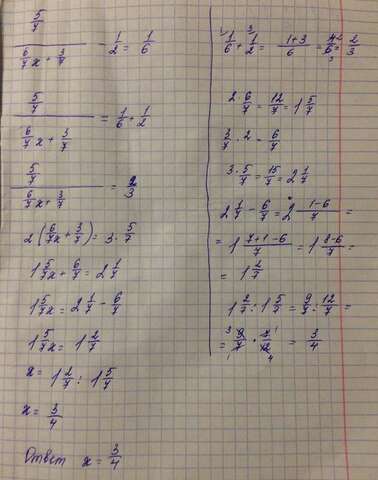 5/7 / (6/7 x + 3/7) - 1/2 = 1/6
5/7 / (6/7 x + 3/7) = 1/6 + 1/2
5/7 / (6/7 x + 3/7) = 2/3
2(6/7 x + 3/7) = 3 · 5/7
1 5/7 x + 6/7 = 2 1/7
1 5/7 x = 2 1/7 - 6/7
1 5/7 x = 1 2/7
x = 1 2/7 : 1 5/7
x = 3/4
Ответ x = 3/4
1/6 + 1/2 = (1+3)/6 = 4/6 = 2/3
2 · 6/7 = 12/7 = 1 5/7
3/7 · 2 = 6/7
3 · 5/7 = 15/7 = 2 1/7
2 1/7 - 6/7 = 2 (1-6)/7 =
= 1 (7+1-6)/7 = 1 (8-6)/7 =
= 1 2/7
1 2/7 : 1 5/7 = 9/7 : 12/7 =
= 9/7 · 7/12 = 3/4